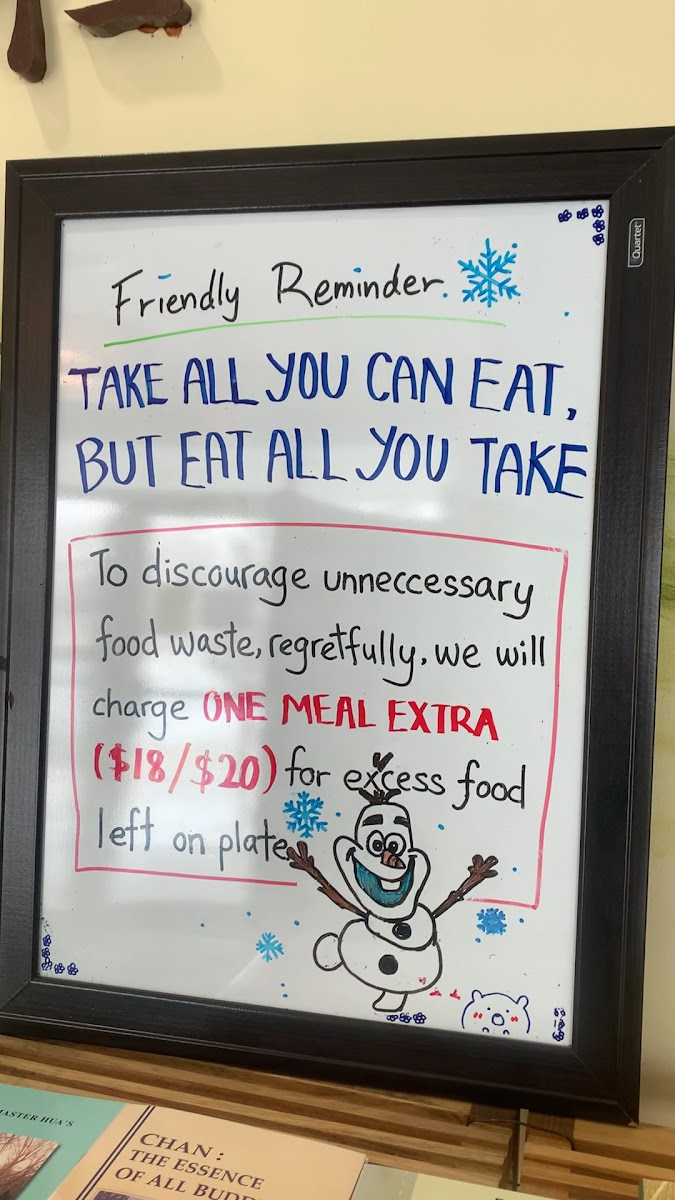 Quartet
Friendly Reminder.
TAKE ALL YOU CAN EAT,
BUT EAT ALL YOU TAKE
To discourage unneccessary
food waste, regretfully, we will
charge ONE MEAL EXTRA
($18/$20) for excess food
left on plate
MASTER HUA'S
CHAN:
THE ESSENCE
OF ALL BUDD